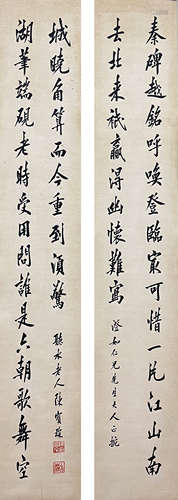 秦碑越銘呼喚登臨最可惜一片江山南
去北來祗贏得幽懷難寫
澄如仁兄先生大人正
湖華端硯老時受用問誰是六朝歌舞空
城曉角算而今重到須驚
聽水老人陳寶琛